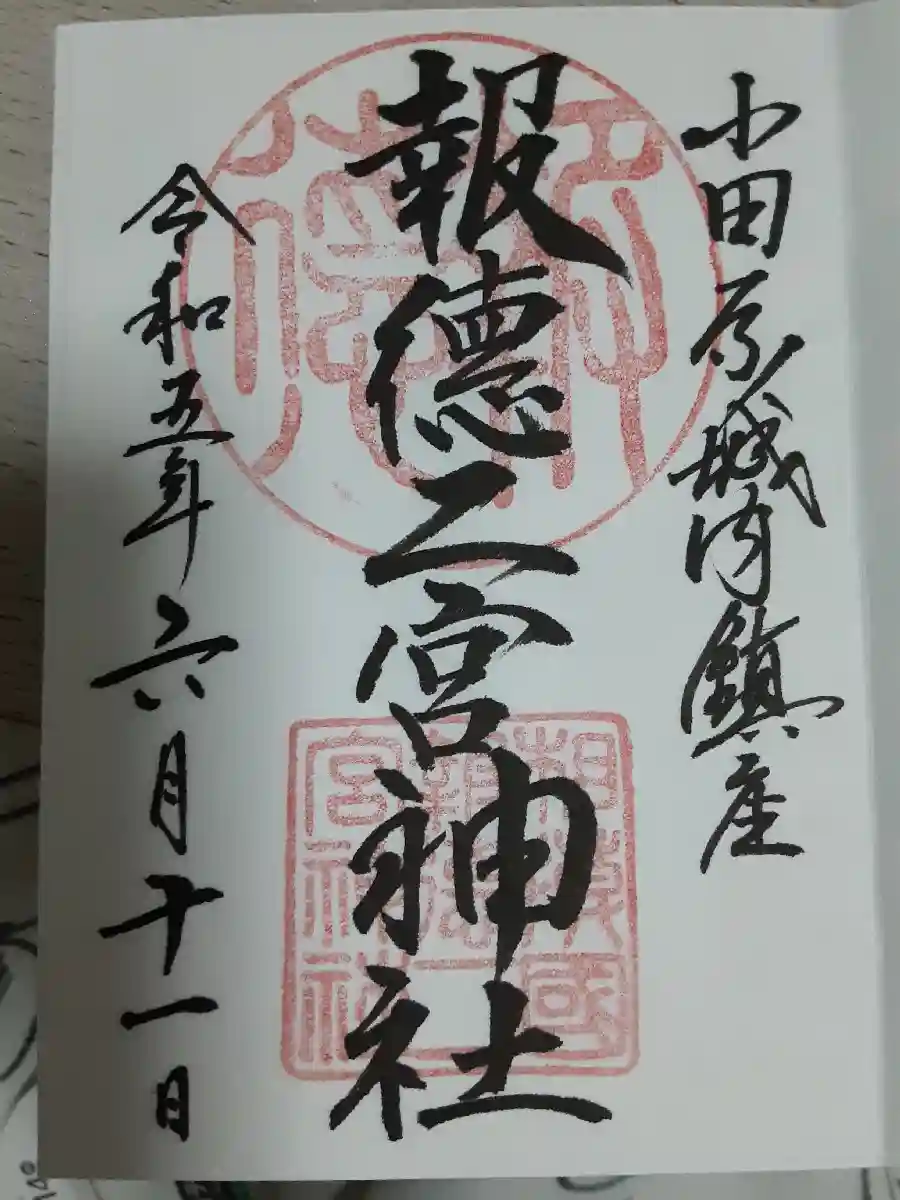 小田原城内鎮座
報徳二宮神社
令和五年六月十一日
相模國報徳二宮神社
報徳